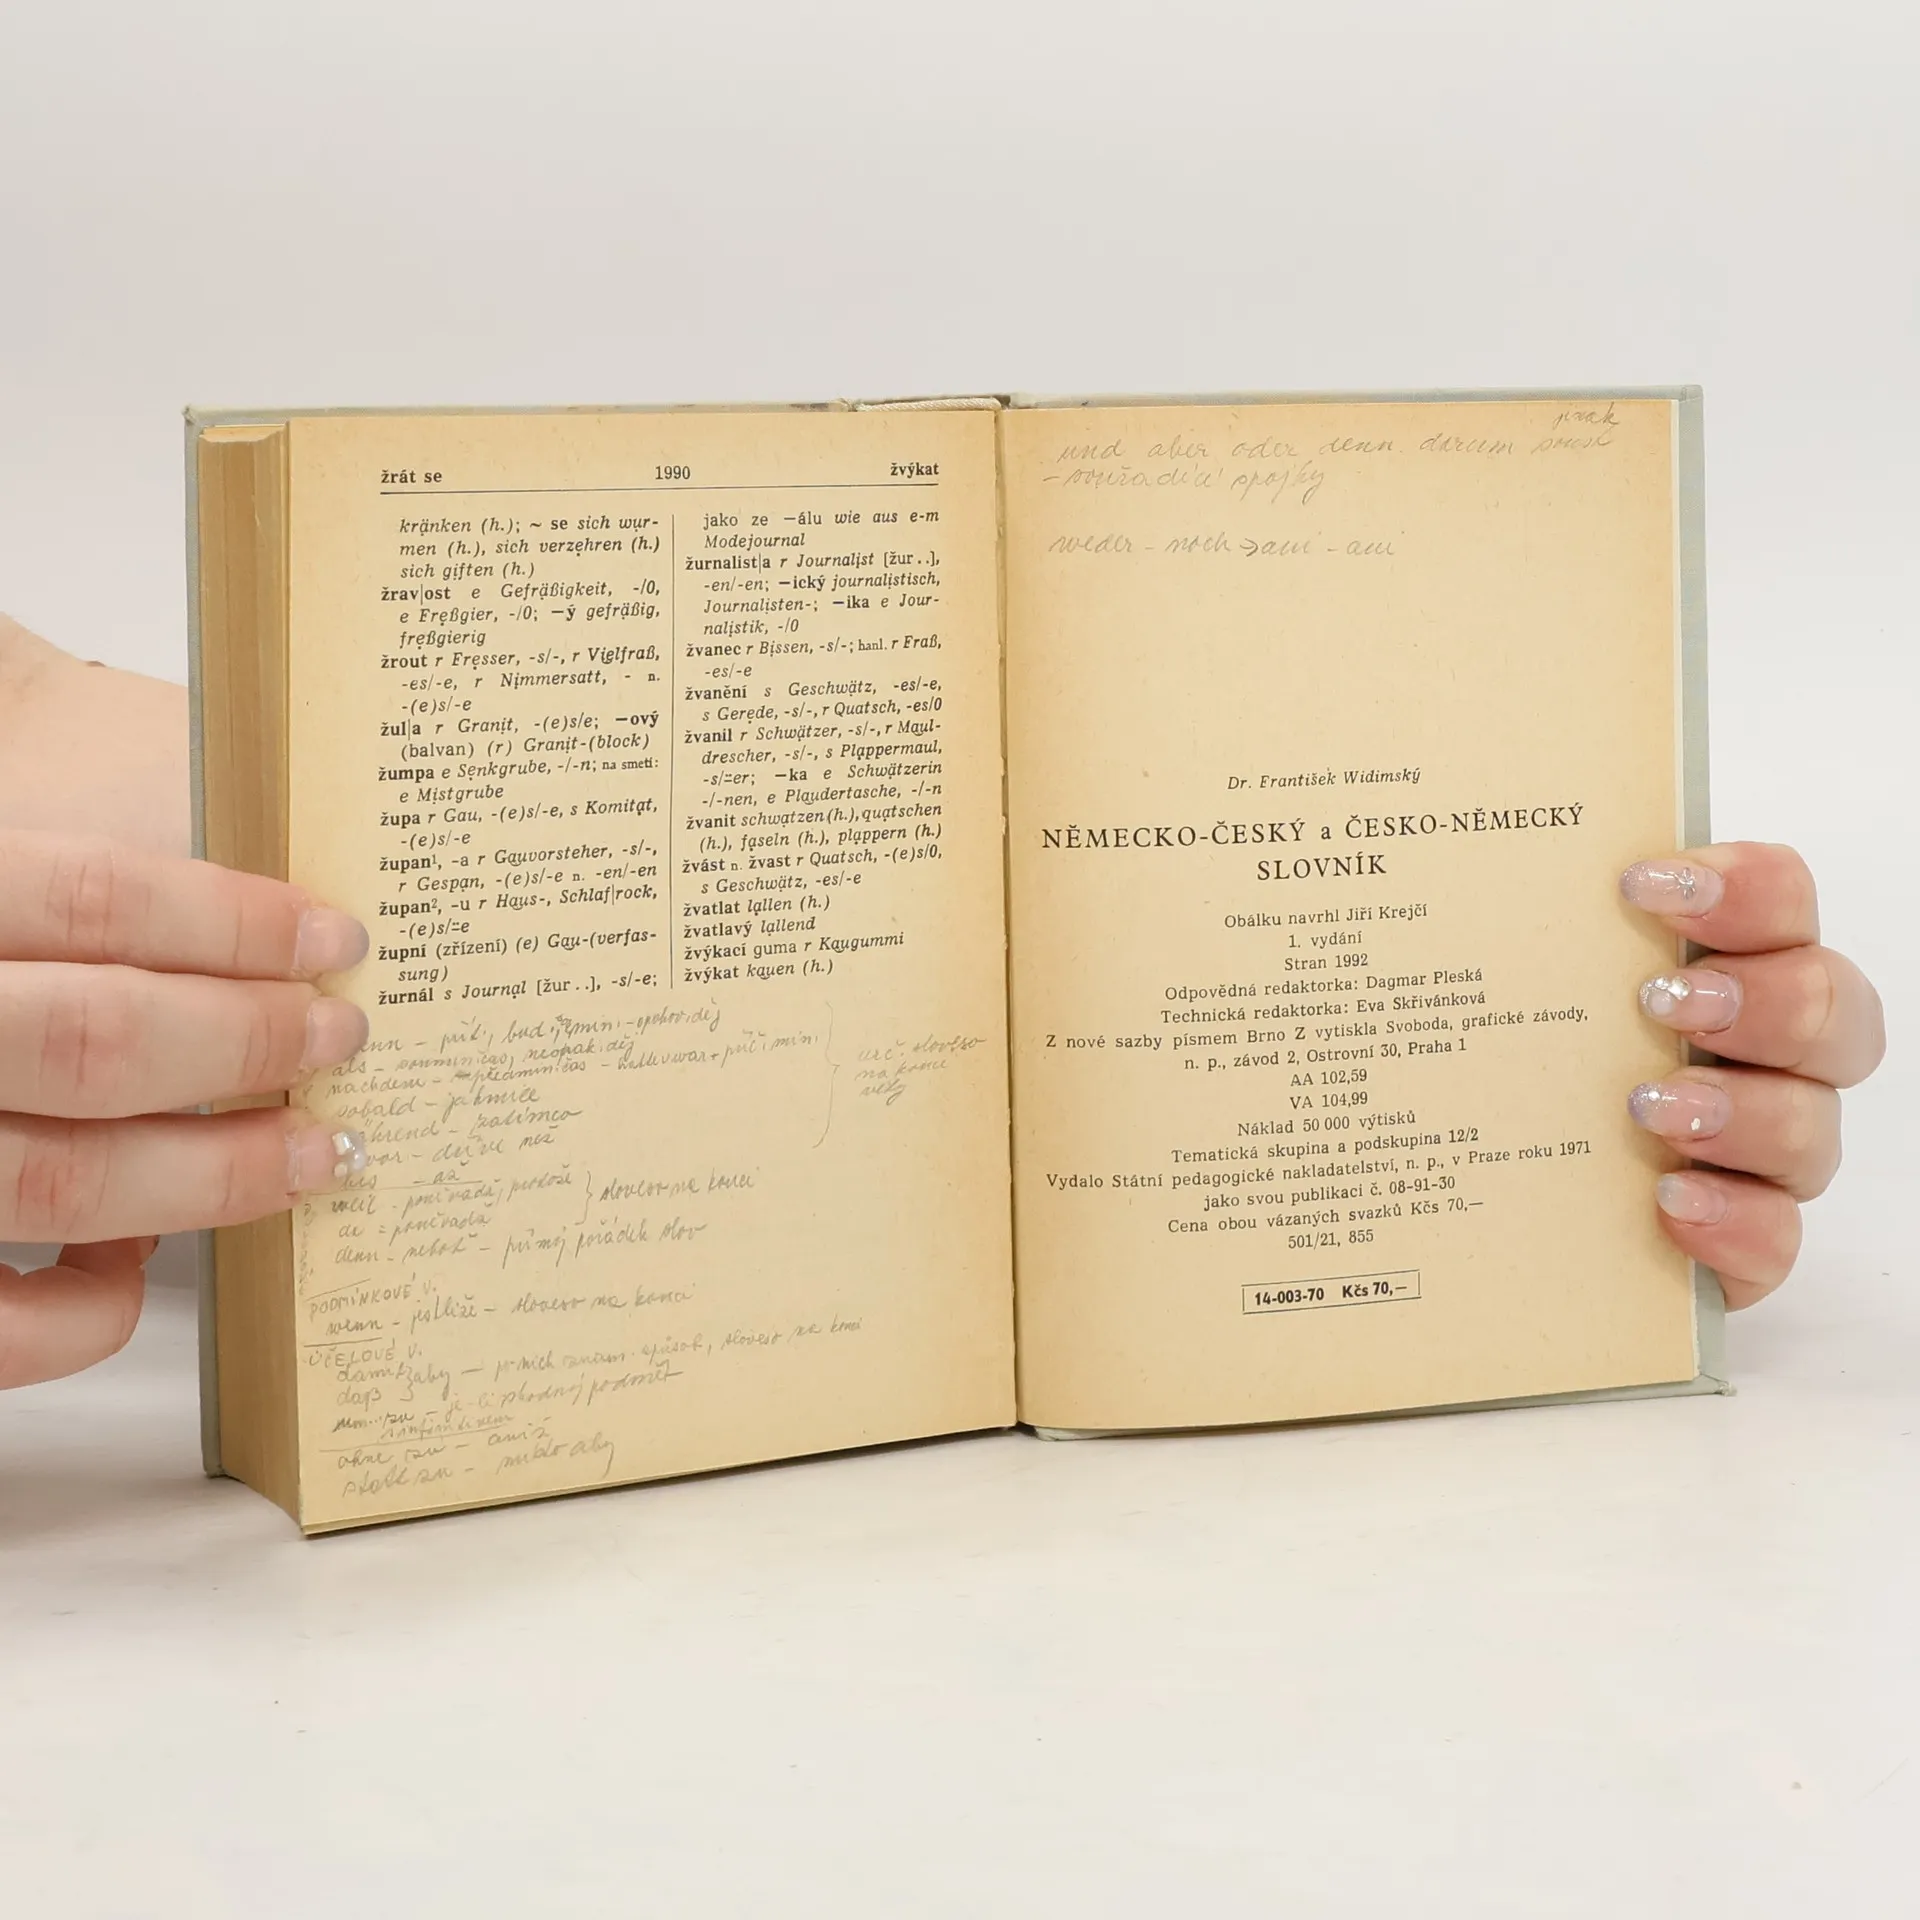 žrát se 1990 žvýkat
kränken (h.); ~ se sich wur-
men (h.), sich verzehren (h.)
sich giften (h.)
žrav|ost e Gefräßigkeit, -/0,
e Freßgier, -/0; —ý gefräßig,
freßgierig
žrout r Fresser, -s/-, r Vielfraß,
-es/-e, r Nimmersatt, - n.
-(e)s/-e
žul|a r Granit, -(e)s/e; —ový
(balvan) (r) Granit-(block)
žumpa e Senkgrube, -/-n; na smetí:
e Mistgrube
župa r Gau, -(e)s/-e, s Komitat,
-(e)s/-e
župan¹, -a r Gauvorsteher, -s/-,
r Gespan, -(e)s/-e n. -en/-en
župan², -u r Haus-, Schlaf|rock,
-(e)s/=e
župní (zřízení) (e) Gau-(verfas-
sung)
žurnál s Journal [žur..], -s/-e;
jako ze —álu wie aus e-m
Modejournal
žurnalist|a r Journalist [žur..],
-en/-en; —ický journalistisch,
Journalisten-; —ika e Jour-
nalistik, -/0
žvanec r Bissen, -s/-; hanl. r Fraß,
-es/-e
žvanění s Geschwätz, -es/-e,
s Gerede, -s/-, r Quatsch, -es/0
žvanil r Schwätzer, -s/-, r Maul-
drescher, -s/-, s Plappermaul,
-s/=er; —ka e Schwätzerin
-/-nen, e Plaudertasche, -/-n
žvanit schwatzen (h.), quatschen
(h.), faseln (h.), plappern (h.)
žvást n. žvast r Quatsch, -(e)s/0,
s Geschwätz, -es/-e
žvatlat lallen (h.)
žvatlavý lallend
žvýkací guma r Kaugummi
žvýkat kauen (h.)
als - souminčas, neopak. děj
nachdem - předmin. čas -
sobald - jakmile
zatímco
dříve než
až
weil - poněvadž, protože } sloveso na konci
da = poněvadž
denn - neboť - přímý pořádek slov
urč. sloveso
na konci
věty
PODMÍNKOVÉ V.
wenn - jestliže - sloveso na konci
ÚČELOVÉ V.
damit } aby - sloveso na konci
daß
um...zu - je-li shodný podmět
s infinitivem
ohne zu - aniž
statt zu - místo aby
jinak
und aber oder denn darum sonst
- souřadící spojky
weder - noch → ani - ani
Dr. František Widimský
NĚMECKO-ČESKÝ a ČESKO-NĚMECKÝ
SLOVNÍK
Obálku navrhl Jiří Krejčí
1. vydání
Stran 1992
Odpovědná redaktorka: Dagmar Pleská
Technická redaktorka: Eva Skřivánková
Z nové sazby písmem Brno Z vytiskla Svoboda, grafické závody,
n. p., závod 2, Ostrovní 30, Praha 1
AA 102,59
VA 104,99
Náklad 50 000 výtisků
Tematická skupina a podskupina 12/2
Vydalo Státní pedagogické nakladatelství, n. p., v Praze roku 1971
jako svou publikaci č. 08-91-30
Cena obou vázaných svazků Kčs 70,—
501/21, 855
14-003-70 Kčs 70,—